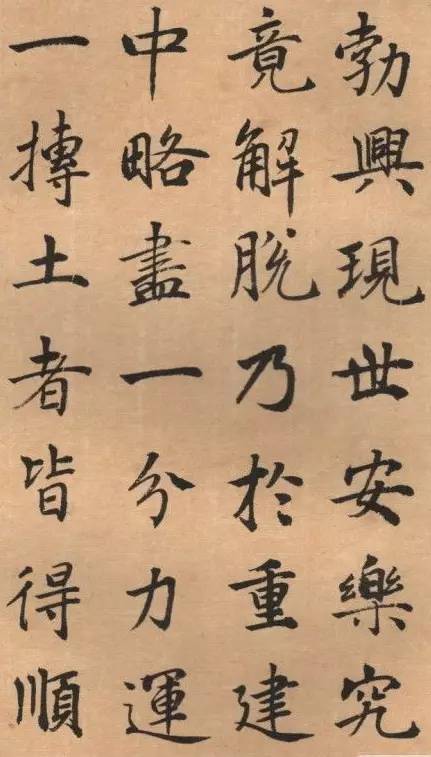 勃興現世安樂究
竟解脫乃於重建
中略盡一分力運
一摶土者皆得順